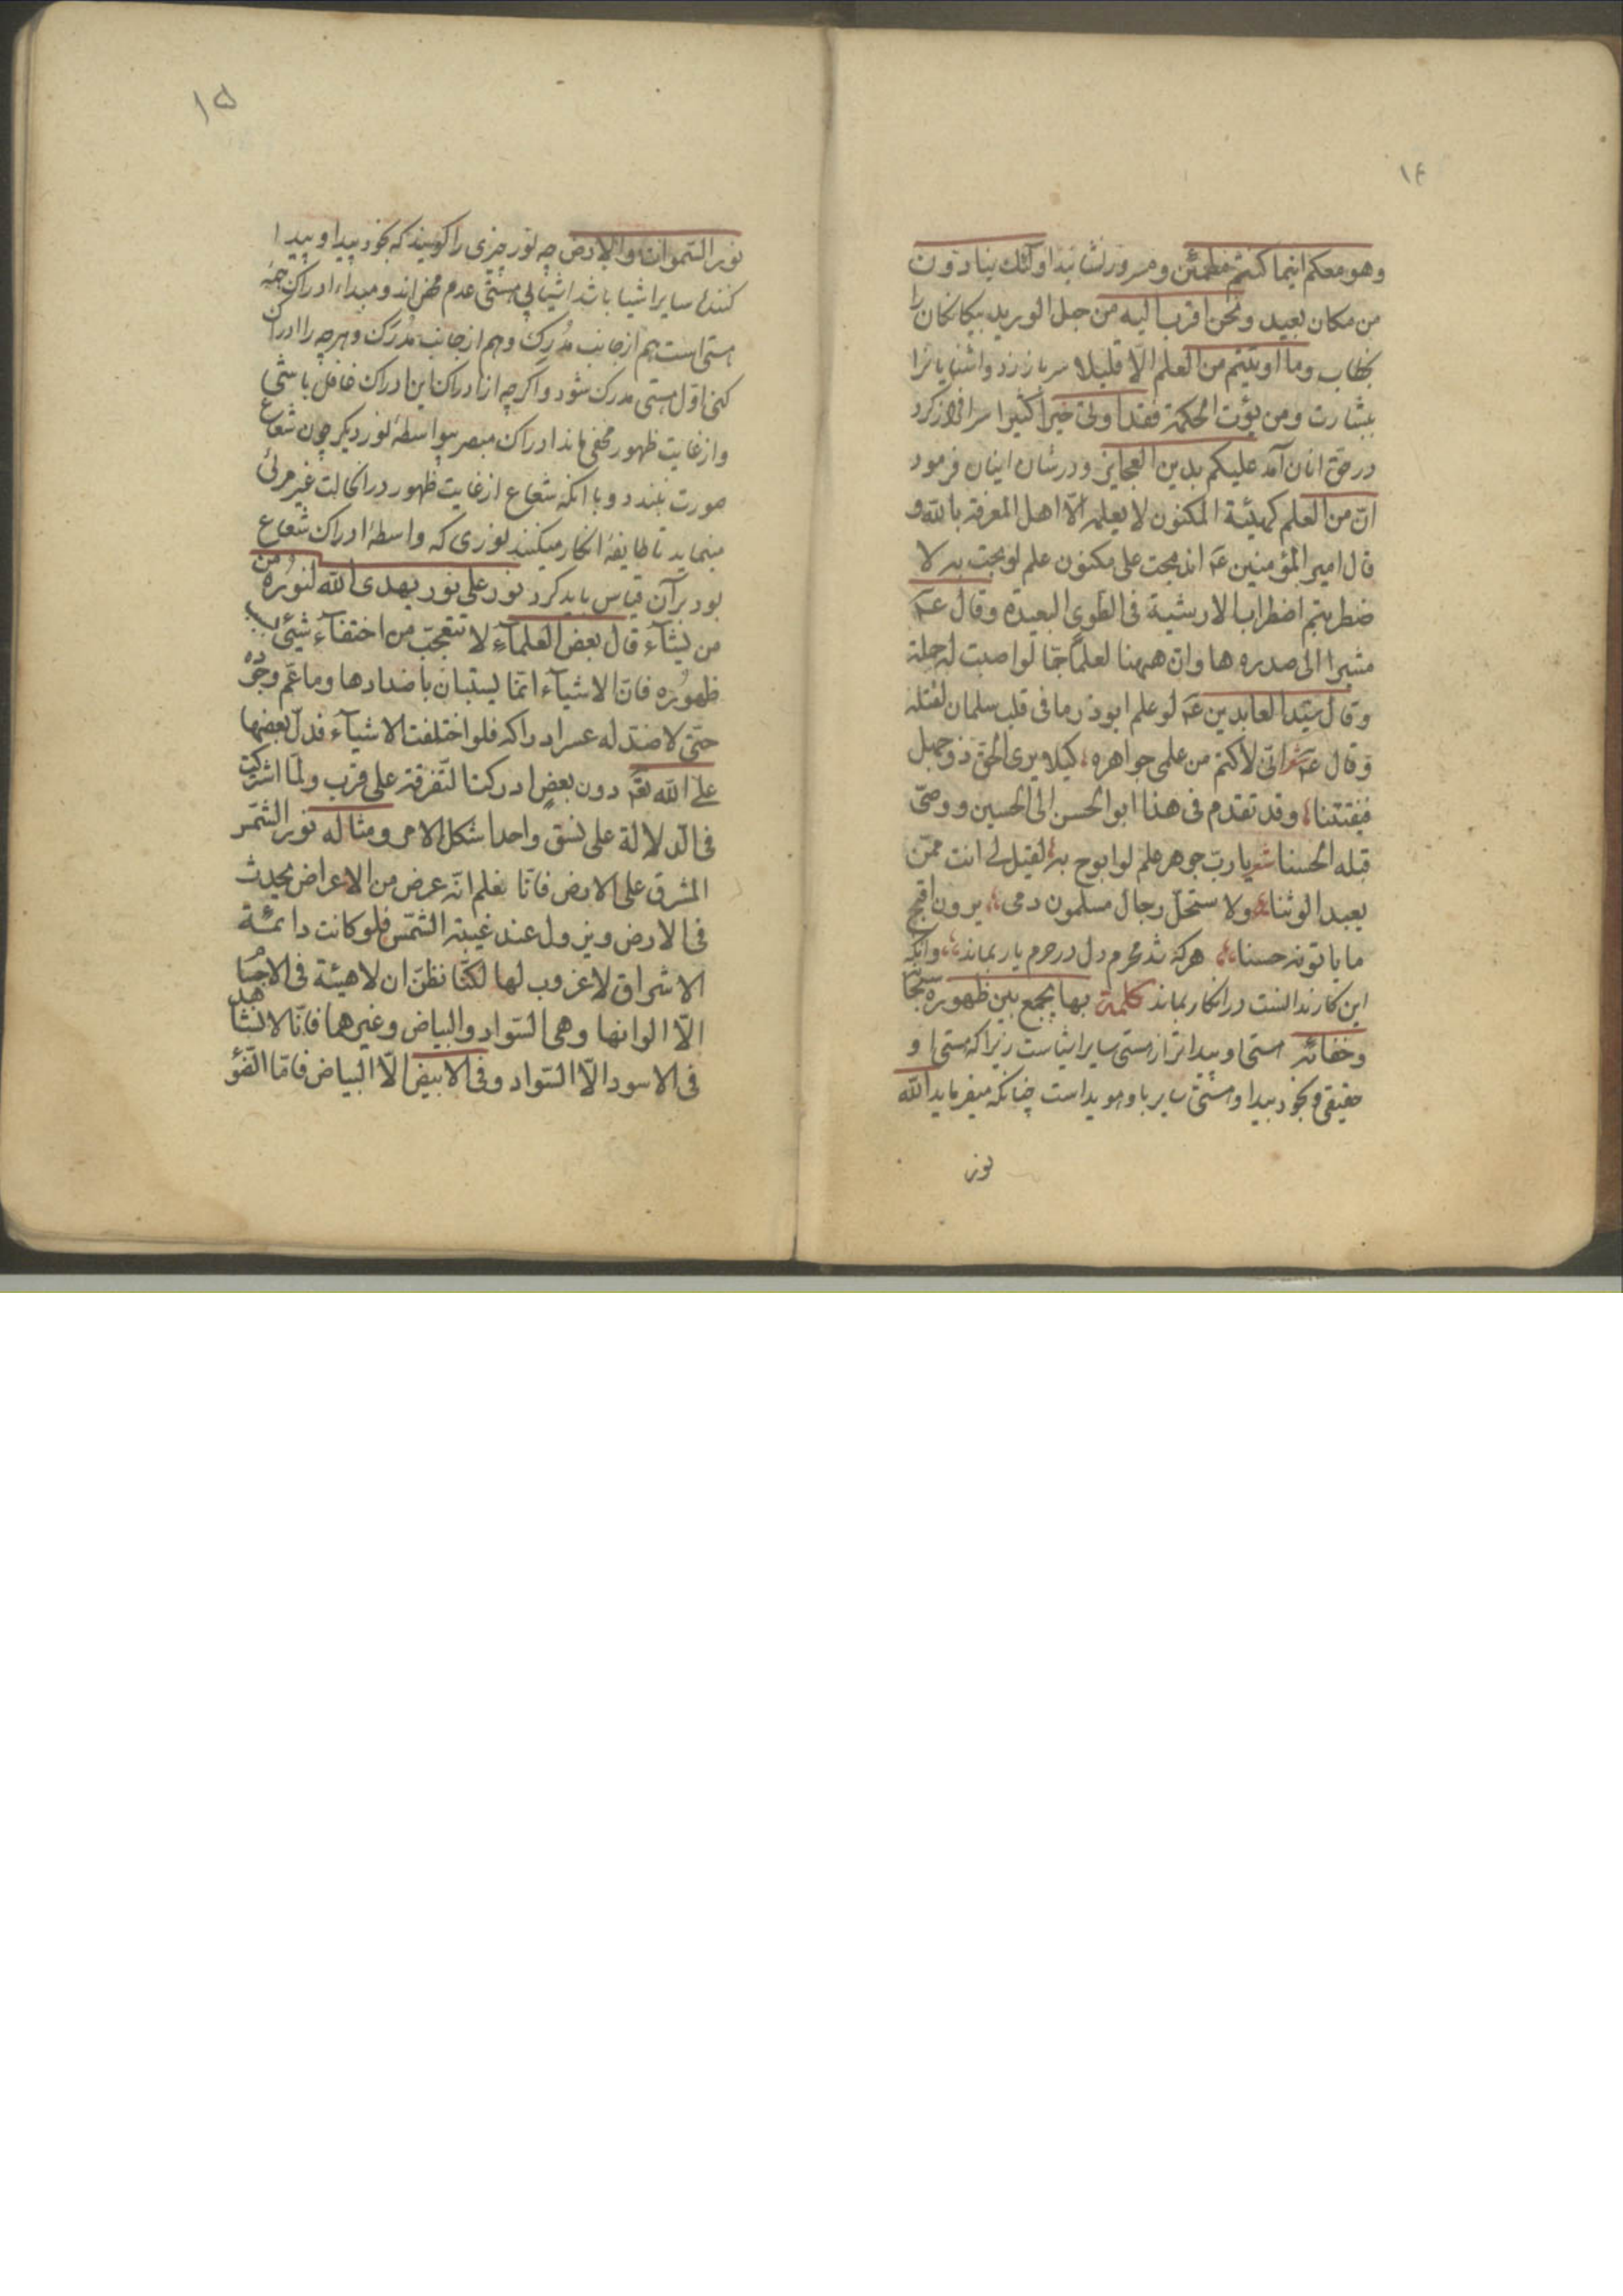 ۱۴
وهو معکم اینما کنتم مطمئن و مسرور نشانید اولئك ینادون
من مکان بعید ونحن اقرب الیه من حبل الورید بیکانکان را
بخطاب وما اوتیتم من العلم الّا قلیلا سر باز زد و اشنایانرا
ببشارت ومن یؤت الحکمة فقد اوتی خیرا کثیرا سرافراز کرد
در حق انان آمد علیکم بدین العجایز و در شان اینان فرمود
انّ من العلم کهیئة المکنون لا یعلمه الّا اهل المعرفة بالله و
قال امیر المؤمنین عم اندمجت علی مکنون علم لو بحت به لا
ضطربتم اضطراب الارشیة فی الطوی البعیدة وقال عم
مشیرا الی صدره ها وانّ ههنا لعلماً جمّا لو اصبت له حملة
وقال سیّد العابدین عم لو علم ابوذر ما فی قلب سلمان لقتله
وقال عم شعر انّی لاکتم من علمی جواهره کیلا یری الحق ذو جهل
فیفتتنا وقد تقدم فی هذا ابو الحسن الی الحسین و وصّی
قبله الحسنا شعر یا ربّ جوهر علم لو ابوح به لقیل لی انت ممّن
یعبد الوثنا ولا ستحلّ رجال مسلمون دمی یرون اقبح
ما یاتونه حسنا هرکه شد محرم دل در حرم یار بماند وانکه
این کار ندانست در انکار بماند کلمة بها یجمع بین ظهوره سبحا
وخفائه هستی او پیداتر از هستی سایر اشیاست زیرا که هستی او
حقیقی و بخود پیدا و هستی سایر باو هویداست چنانکه میفرماید الله
نور
۱۵
نور السّموات والارض چه نور چیزی را کویند که بخود پیدا و پیدا
کننده سایر اشیا باشد اشیا بی هستی عدم محض اند و مبداء ادراک همه
هستی است هم از جانب مُدرِک وهم از جانب مُدرَک و هرچه را ادراک
کنی اوّل هستی مدرک شود و اکرچه از ادراک این ادراک غافل باشی
و از غایت ظهور مخفی ماند ادراک مبصر بواسطهٔ نور دیکر چون شعاع
صورت بندد و با انکه شعاع از غایت ظهور در انحالت غیر مرئی
مینماید تا طایفهٔ انکار میکنند نوری که واسطهٔ ادراک شعاع
بود بر آن قیاس باید کرد نور علی نور یهدی الله لنوره من
من یشآء قال بعض العلمآء لا تتعجّب من اختفآء شیئ بسبب
ظهوره فانّ الاشیآء انّما یستبان باضدادها وما عمّ وجوده
حتّی لا ضدّ له عسر ادراکه فلو اختلفت الاشیآء فدلّ بعضها
علی الله تعم دون بعضٍ ادرکت التّفرقة علی قرب ولمّا اشترکت
فی الدّلالة علی نسق واحد اشکل الامر ومثاله نور الشّمس
المشرق علی الارض فانّا نعلم انّه عرض من الاعراض یحدث
فی الارض ویزول عند غیبة الشّمس فلو کانت دائمـة
الاشراق لا غروب لها لکنّا نظنّ ان لا هیئة فی الاجسا
الّا الوانها وهی السّواد والبیاض وغیرهما فانّا لا نشاهد
فی الاسود الّا السّواد وفی الابیض الّا البیاض فامّا الضّوُ